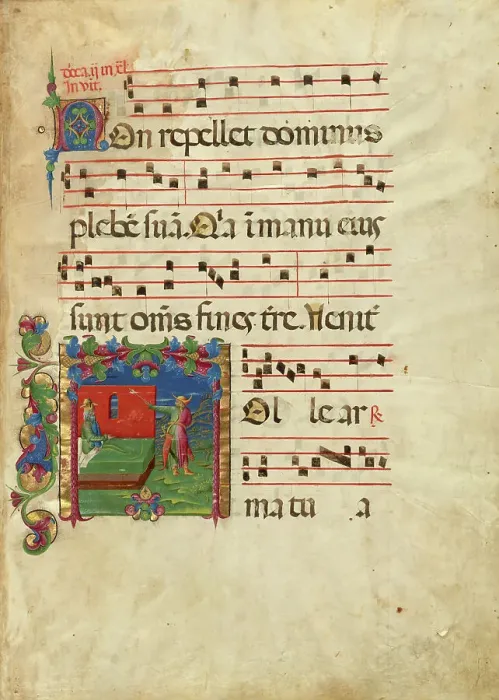 Dōca. ij in xl̄.
Invit.
NOn repellet dominus
plebē suā. Q̄a ī manu eius
sunt om̄s fines t̄re. Venit̄
Ol le ar ℟
ma tu a